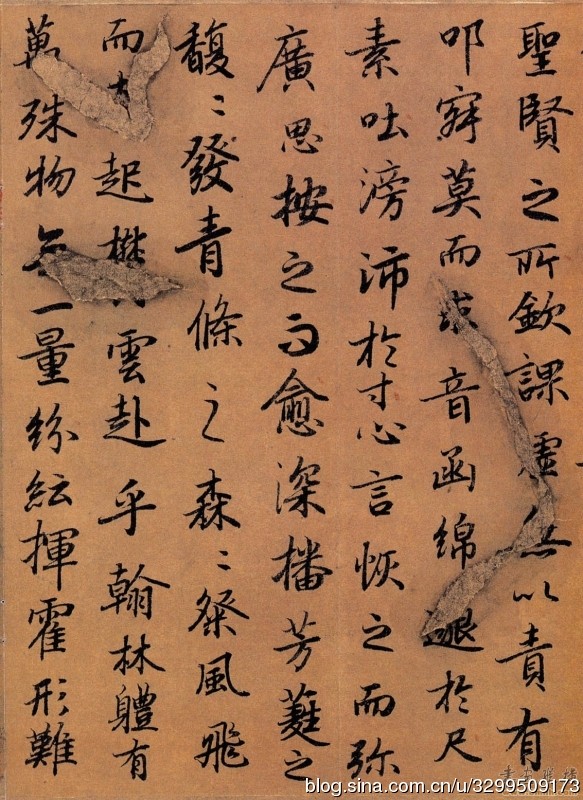 聖賢之所欽課虛無以責有
叩寂莫而求音函綿邈於尺
素吐滂沛於寸心言恢之而弥
廣思按之而愈深播芳蕤之
馥〻發青條之森〻粲風飛
而起欝雲赴乎翰林軆有
萬殊物無一量紛紜揮霍形難
blog.sina.com.cn/u/3299509173